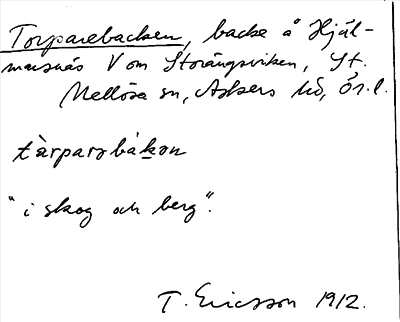 Torparebacken, backe å Hjäl-
marsnäs V om Storängsviken, St.
Mellösa sn, Askers hd, Ör.l.
tàrparsbákɔn
"i skog och berg".
T. Ericsson 1912.